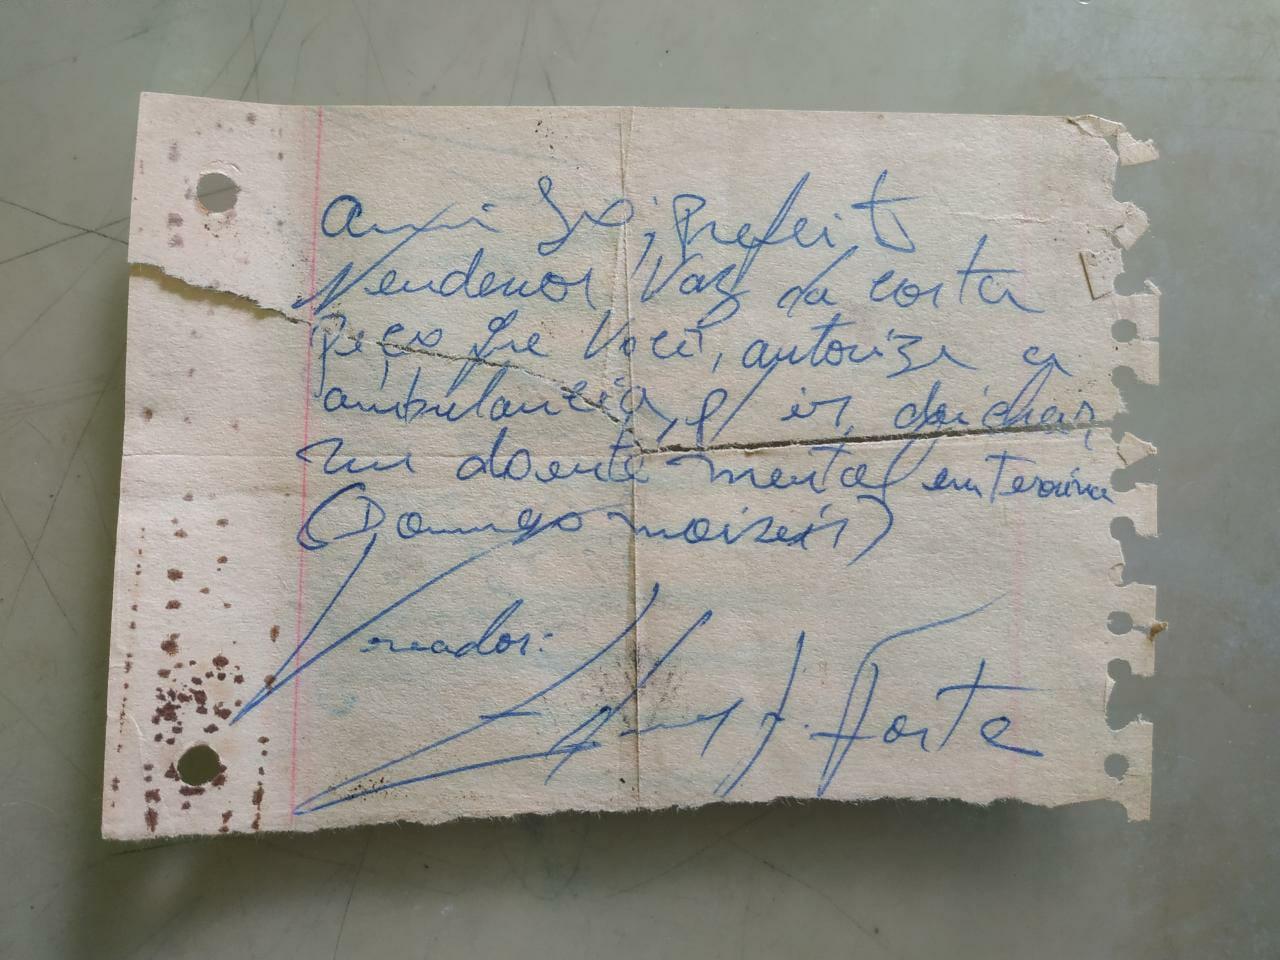 Prefeito
Vaz da Costa
Peço que Você, autoriza a
ambulancia, p/ ir, deichar,
um doente mental em Teresina
(Domingo moizeis)
Vereador:
J. Forte